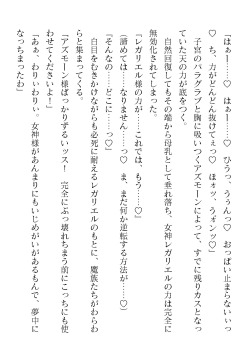 「はぁー……♡　はぁー……♡　ひうっ、うぅんっ♡　おっぱい止まらないっっ
♡　ち、力がどんどん抜けてぇっ♡　ほォッ、ゥオンッ♡」
　子宮のパラグラブと胸に吸いつくアズモーンによって、すでに残りカスとなっ
ていた天の力が底をつく。
　自然回復してもその端から母乳として垂れ落ち、女神レガリエルの力は完全に
無効化されてしまった。
「レガリエル様の力が……これでは、もう……♡」
「諦めては……なりません……っ♡　ま、まだ何か逆転する方法が……♡」
「そんなの……どこに……っ♡」
　白目をむきかけながらも必死に耐えるレガリエルのもとに、魔族たちがわらわ
らと集まってくる。
「アズモーン様ばっかりずるいッス！　完全にぶっ壊れちまう前にこっちにも使
わせてくださいよ！」
「ああ、わりぃわりぃ。女神様があんまりにもいじめがいがあるもんで、夢中に
なっちまったわ」